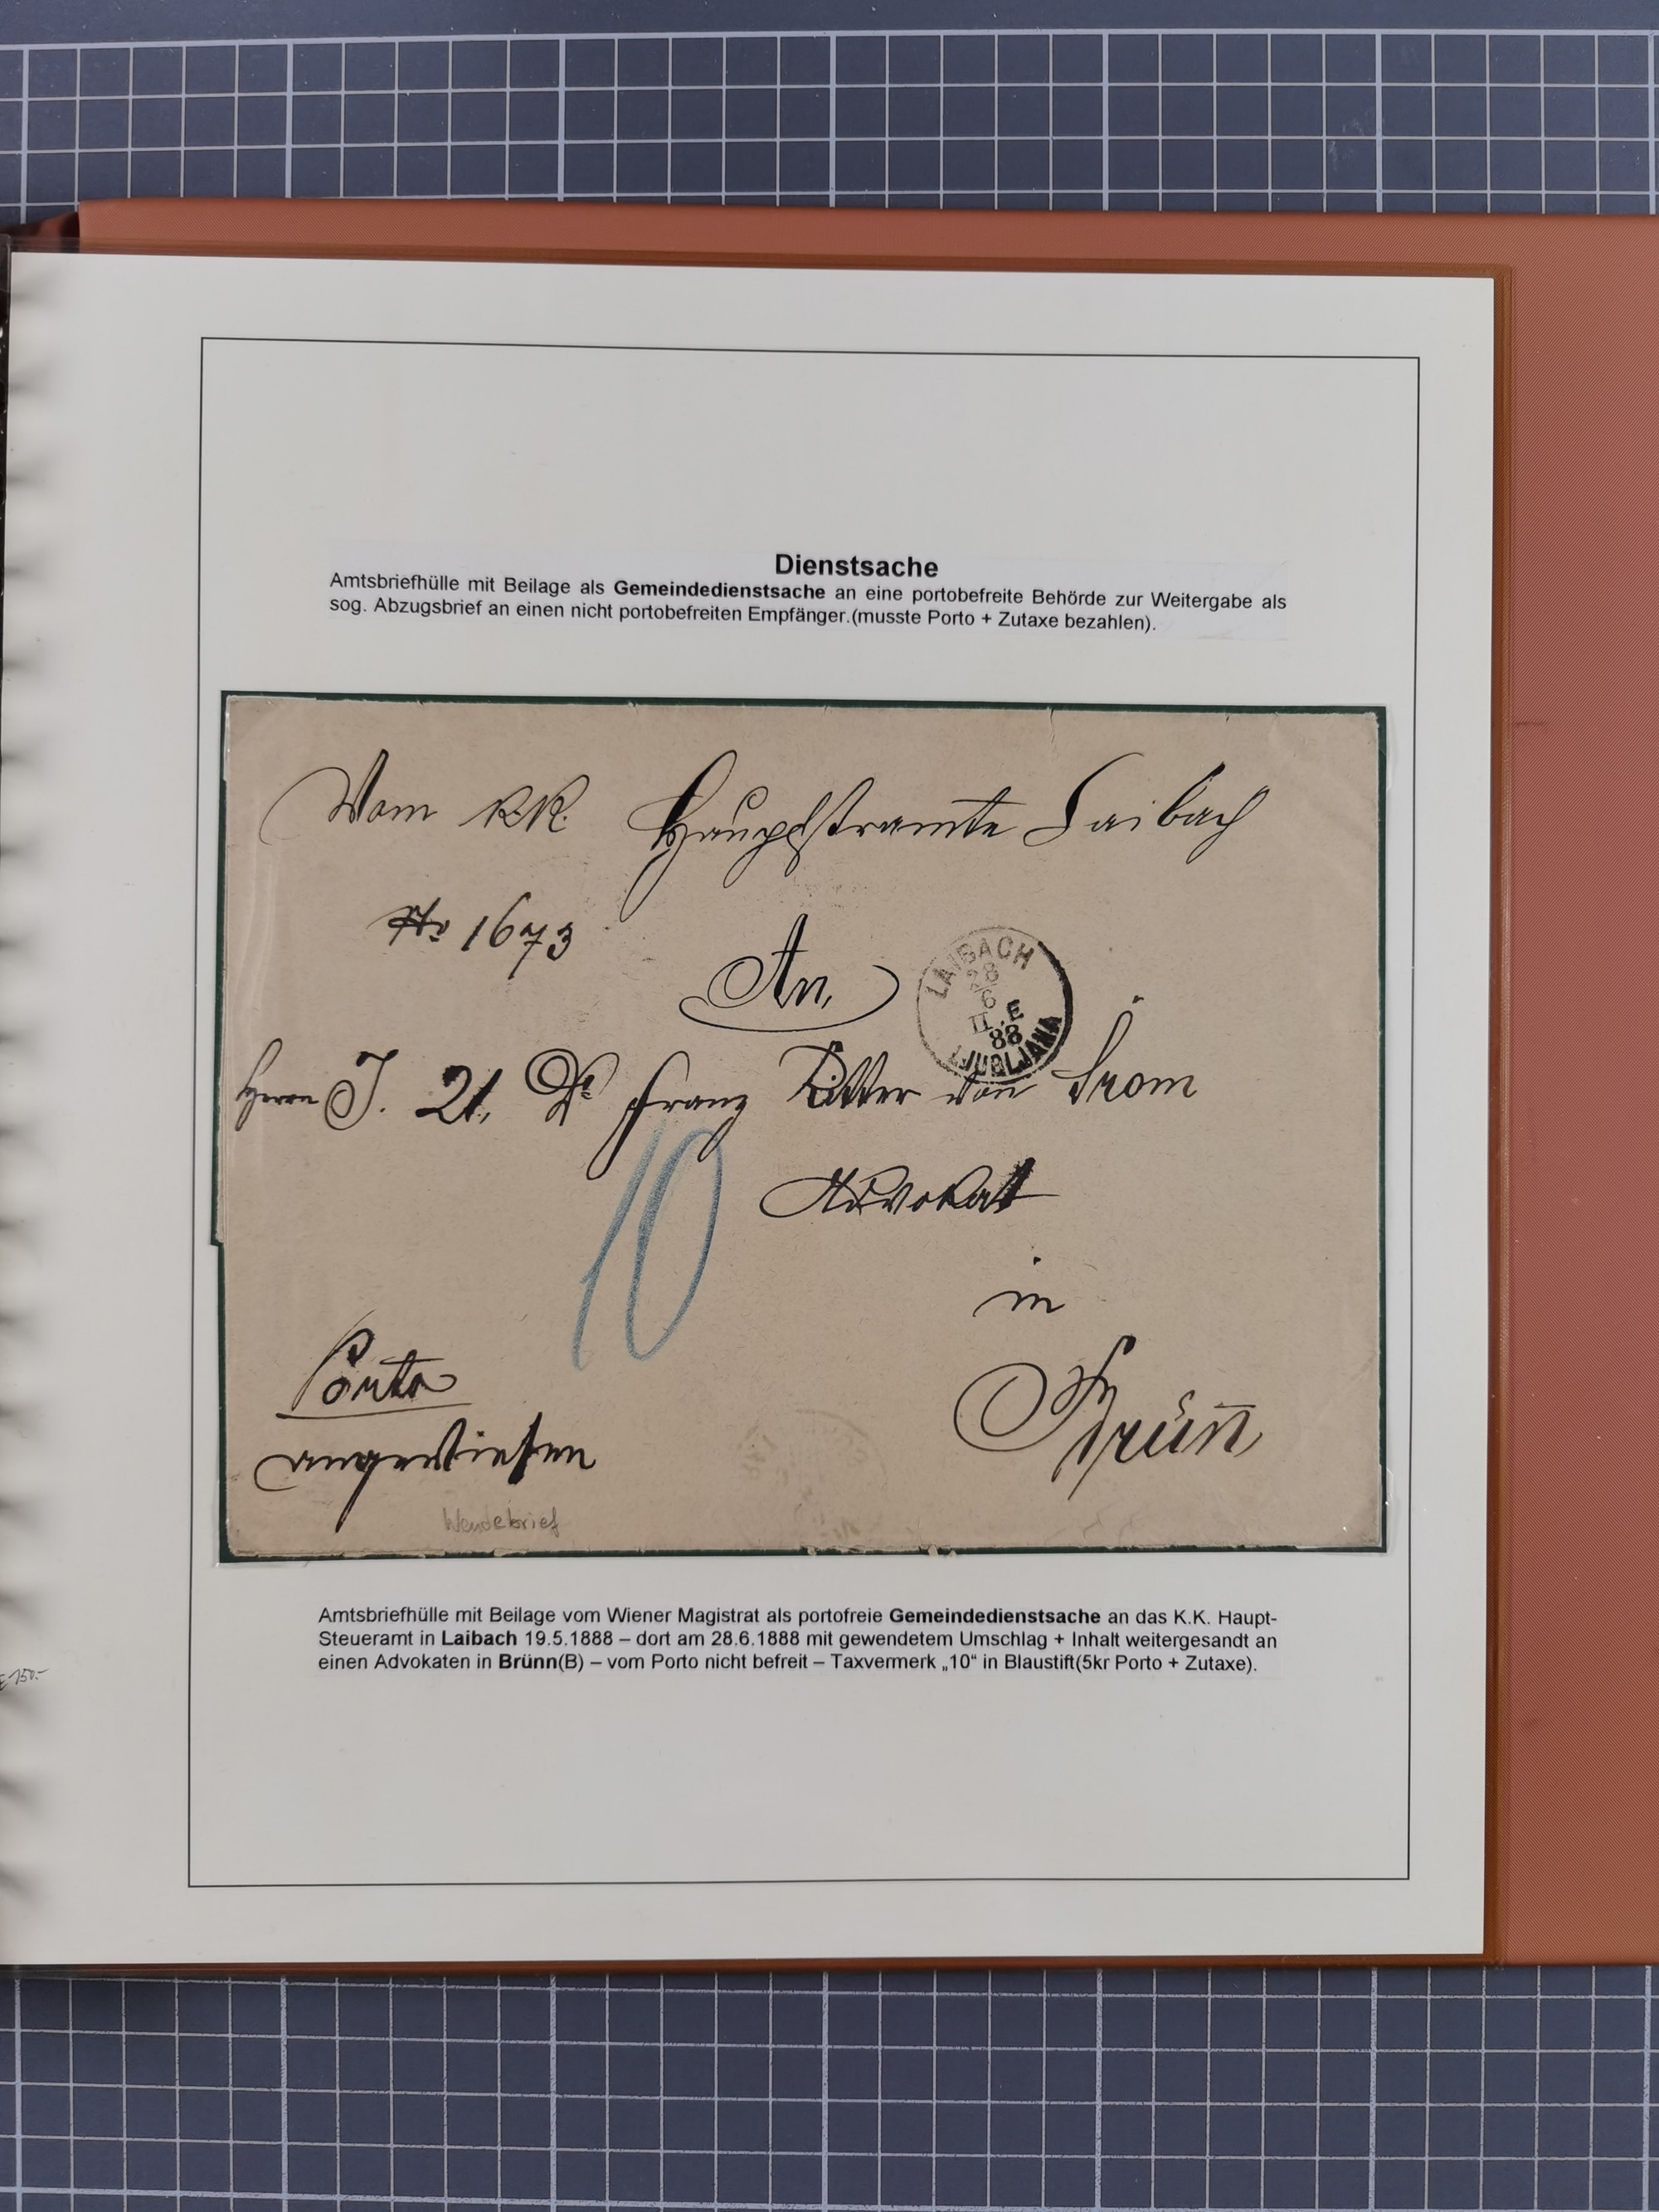 Dienstsache
Amtsbriefhülle mit Beilage als Gemeindedienstsache an eine portobefreite Behörde zur Weitergabe als
sog. Abzugsbrief an einen nicht portobefreiten Empfänger.(musste Porto + Zutaxe bezahlen).
Vom K.K. Laibach
No 1673
An
LAIBACH
28
6
II. E
88
LJUBLJANA
Herrn J. Dr Franz Ritter von Srom
Advokat
10
in
Brünn
Porto
angewiesen
Wendebrief
Amtsbriefhülle mit Beilage vom Wiener Magistrat als portofreie Gemeindedienstsache an das K.K. Haupt-
Steueramt in Laibach 19.5.1888 – dort am 28.6.1888 mit gewendetem Umschlag + Inhalt weitergesandt an
einen Advokaten in Brünn(B) – vom Porto nicht befreit – Taxvermerk „10“ in Blaustift(5kr Porto + Zutaxe).